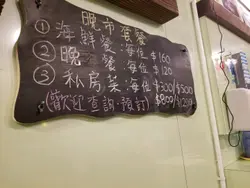 晚市套餐
① 海鮮餐 每位 $160
② 晚餐 每位 $120
③ 私房菜 每位 $300 $500
(歡迎查詢 預訂) $800